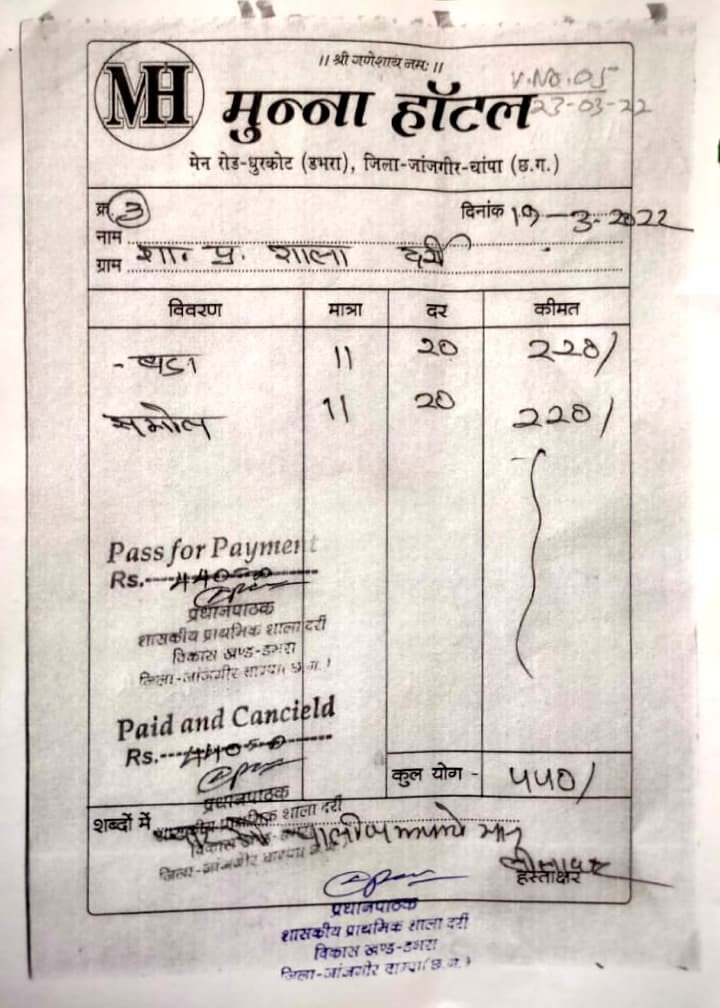 ॥ श्री गणेशाय नमः ॥
V.No. 05
23-03-22
MH
मुन्ना हॉटल
मेन रोड-धुरकोट (डभरा), जिला-जांजगीर-चांपा (छ.ग.)
क्र. 3
दिनांक 19-3-2022
नाम
ग्राम शा. प्र. शाला दर्री
विवरण मात्रा दर कीमत
- बड़ा 11 20 220/
समोसा 11 20 220/
Pass for Payment
Rs. 440=00
प्रधानपाठक
शासकीय प्राथमिक शाला दर्री
विकास खण्ड-डभरा
जिला-जांजगीर चाम्पा (छ.ग.)
Paid and Cancield
Rs. 440=00
कुल योग - 440/
प्रधानपाठक
शासकीय प्राथमिक शाला दर्री
विकास खण्ड-डभरा
जिला-जांजगीर चाम्पा
शब्दों में चालीस रूपये मात्र
हस्ताक्षर
प्रधानपाठक
शासकीय प्राथमिक शाला दर्री
विकास खण्ड-डभरा
जिला-जांजगीर चाम्पा (छ.ग.)